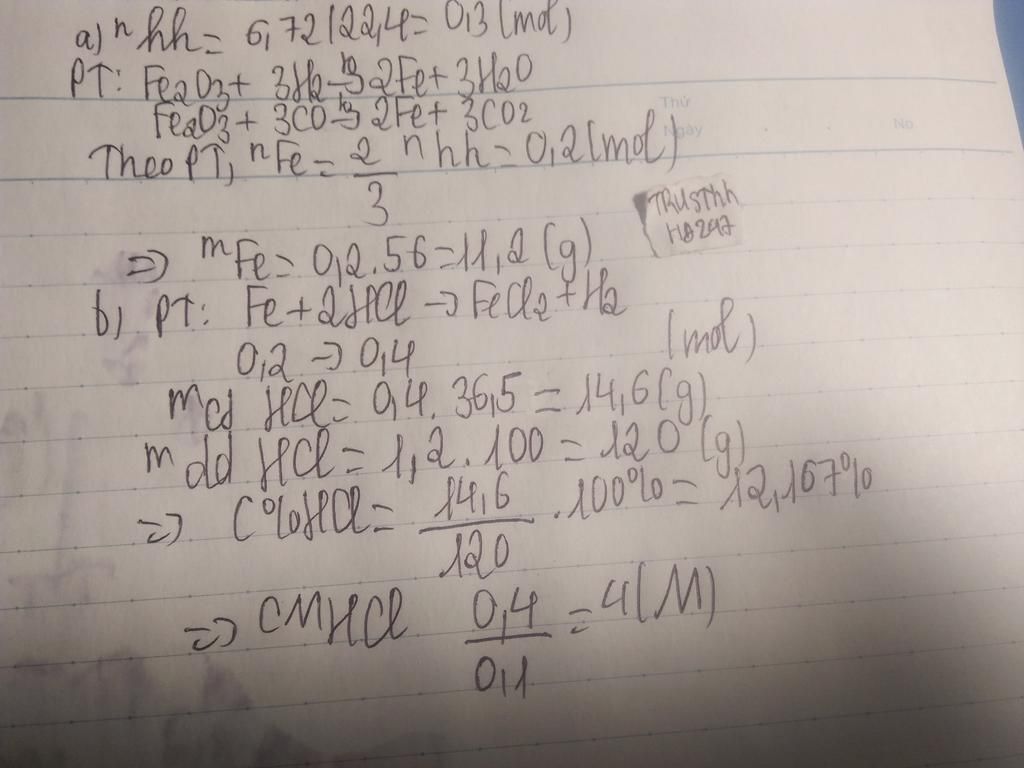 a) nhh = 6,72/22,4 = 0,3 (mol)
PT: Fe2O3 + 3H2 -to-> 2Fe + 3H2O
Fe2O3 + 3CO -to-> 2Fe + 3CO2
Thứ
Ngày
No.
Theo PT, nFe = 2/3 nhh = 0,2 (mol)
TRUSThh
HD247
=> mFe = 0,2.56 = 11,2 (g)
b) PT: Fe + 2HCl -> FeCl2 + H2
0,2 -> 0,4 (mol)
mcd HCl = 0,4.36,5 = 14,6 (g)
mdd HCl = 1,2.100 = 120 (g)
=> C%HCl = 14,6/120 .100% = 12,167%
=> CMHCl 0,4/0,1 = 4 (M)